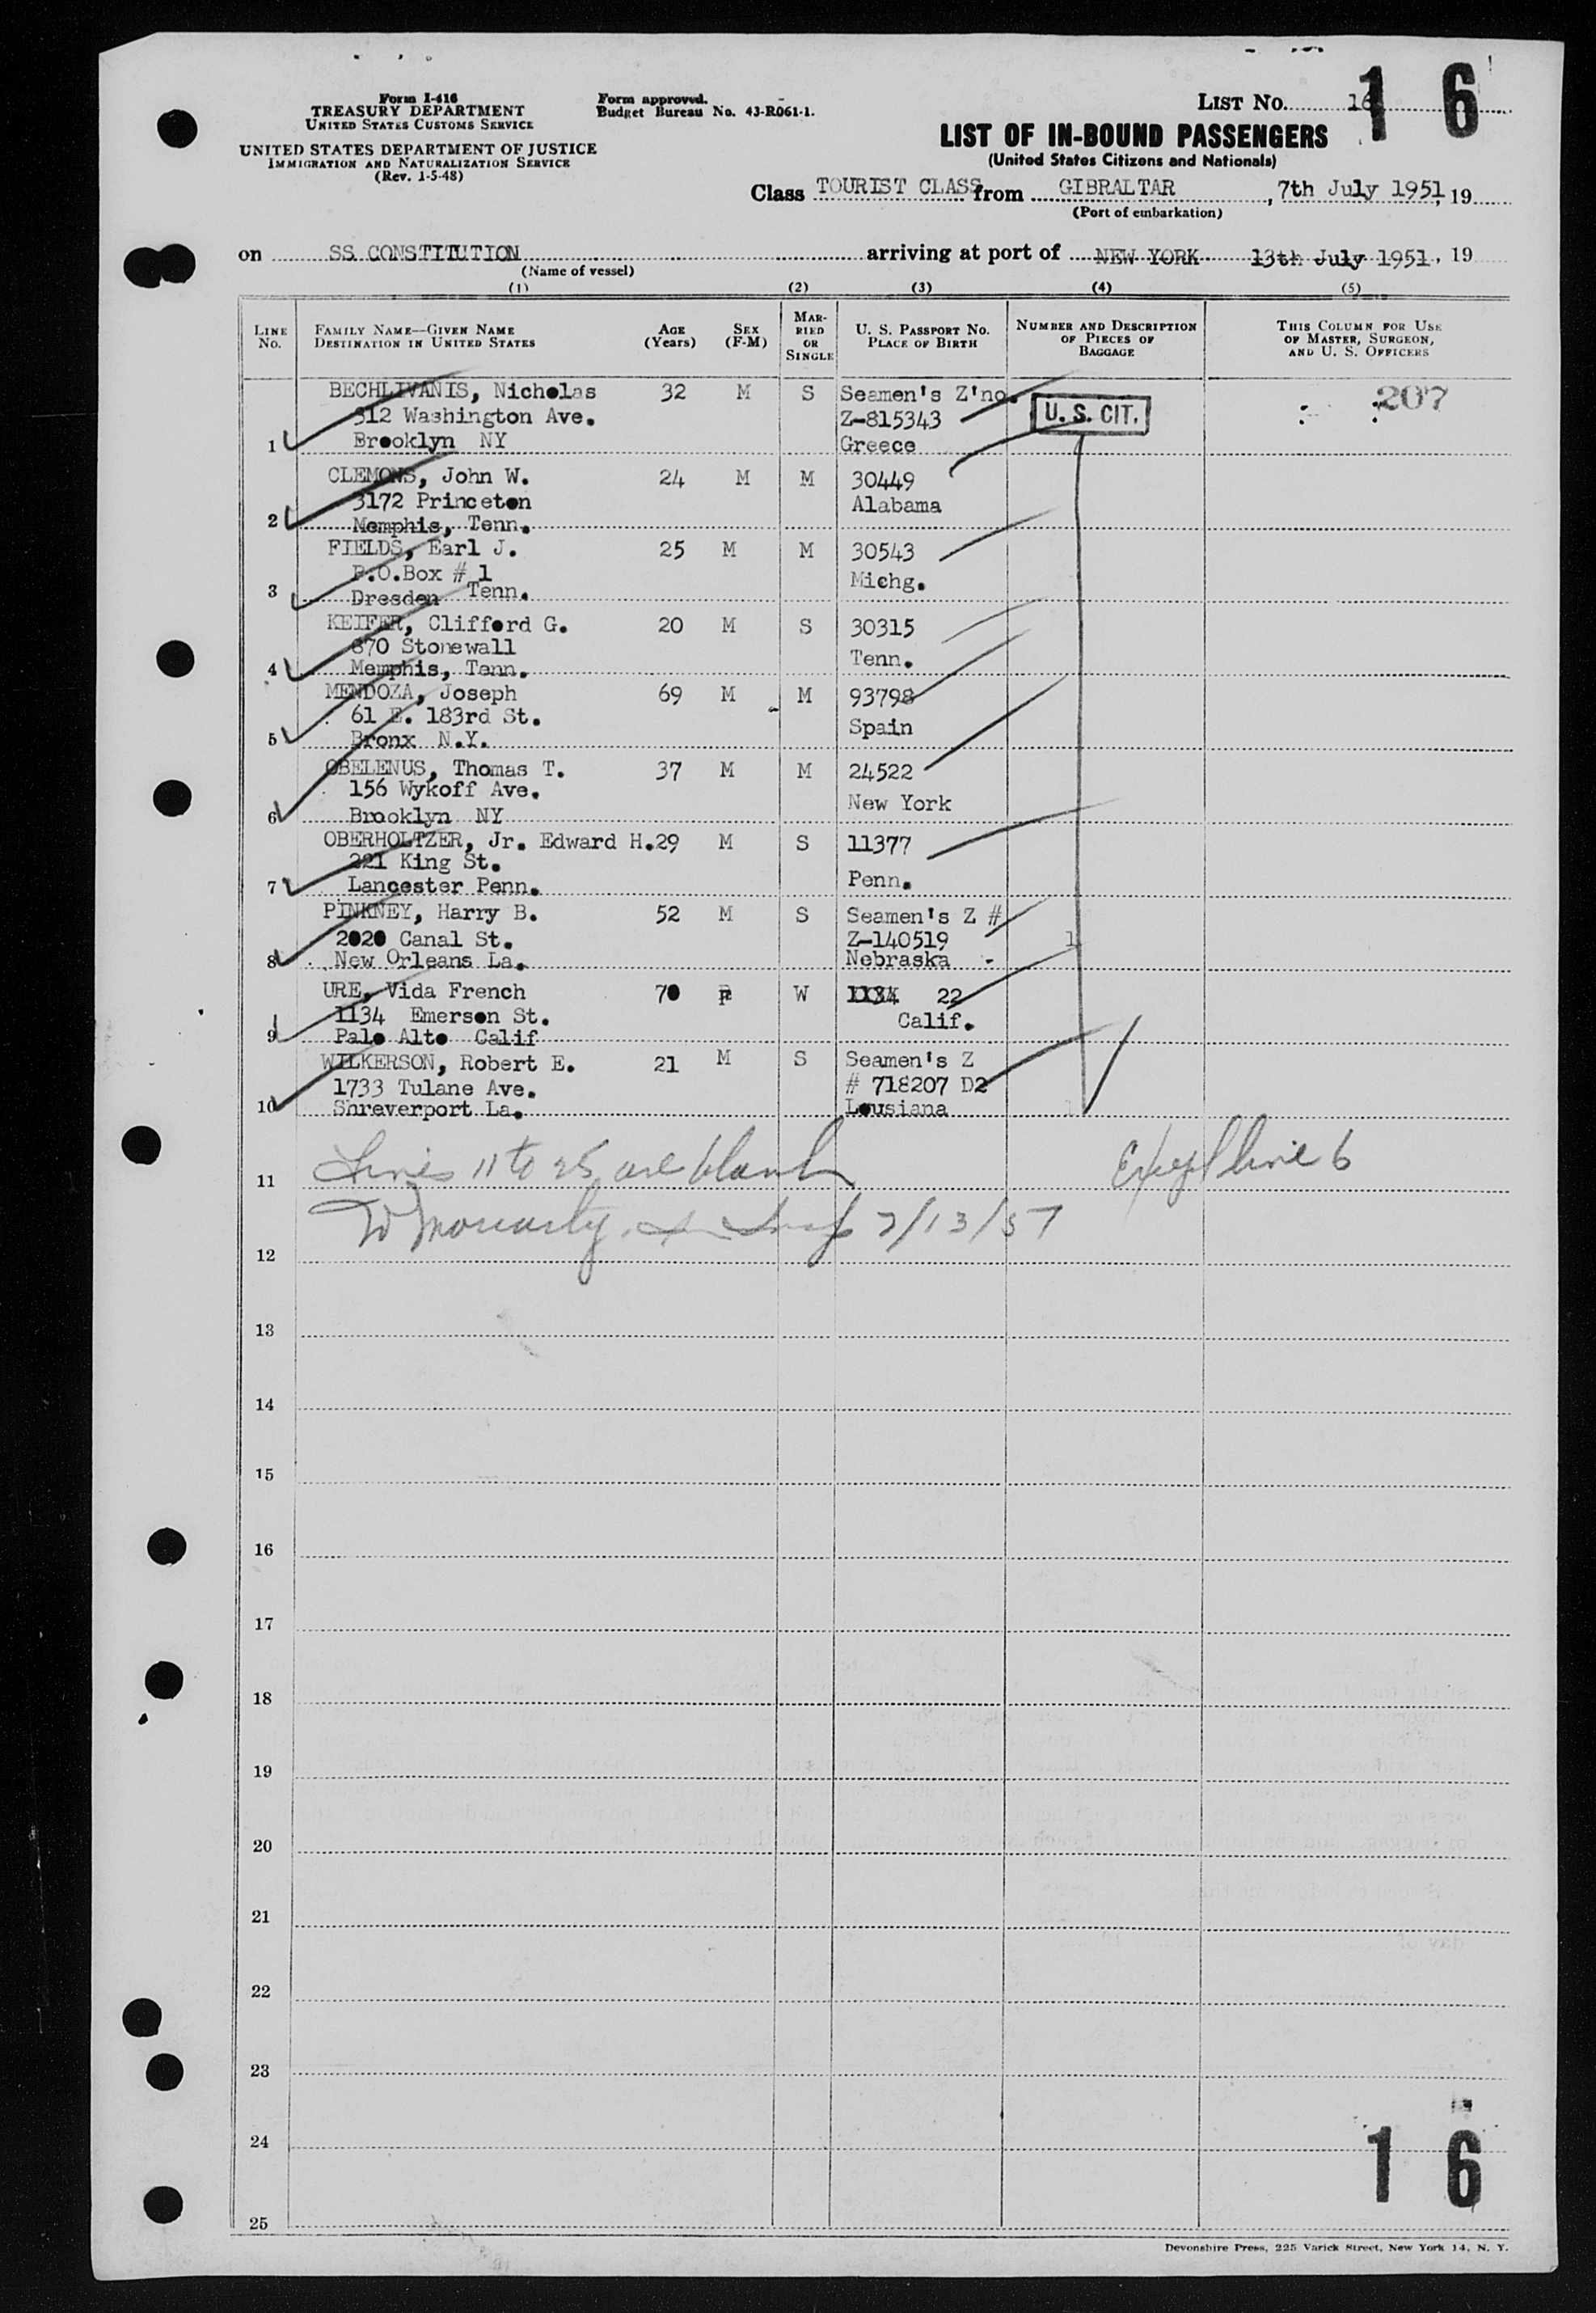 Form I-416
TREASURY DEPARTMENT
UNITED STATES CUSTOMS SERVICE
UNITED STATES DEPARTMENT OF JUSTICE
IMMIGRATION AND NATURALIZATION SERVICE
(Rev. 1-5-48)
Form approved.
Budget Bureau No. 43-R061-1.
LIST No. 16
1 6
LIST OF IN-BOUND PASSENGERS
(United States Citizens and Nationals)
Class TOURIST CLASS from GIBRALTAR, 7th July 1951, 19
(Port of embarkation)
on SS CONSTITUTION arriving at port of NEW YORK 13th July 1951, 19
(Name of vessel)
(1) (2) (3) (4) (5)
LINE No. FAMILY NAME—GIVEN NAME DESTINATION IN UNITED STATES AGE (Years) SEX (F-M) MARRIED OR SINGLE U. S. PASSPORT No. PLACE OF BIRTH NUMBER AND DESCRIPTION OF PIECES OF BAGGAGE THIS COLUMN FOR USE OF MASTER, SURGEON, AND U. S. OFFICERS
BECHLIVANIS, Nicholas 32 M S Seamen's Z'no. 207
312 Washington Ave. Z-815343 U. S. CIT.
1 Brooklyn NY Greece
CLEMONS, John W. 24 M M 30449
3172 Princeton Alabama
2 Memphis, Tenn.
FIELDS, Earl J. 25 M M 30543
P.O.Box # 1 Michg.
3 Dresden Tenn.
KEIFER, Clifford G. 20 M S 30315
870 Stonewall
4 Memphis, Tenn. Tenn.
MENDOZA, Joseph 69 M M 93798
61 E. 183rd St. Spain
5 Bronx N.Y.
OBELENUS, Thomas T. 37 M M 24522
156 Wykoff Ave.
6 Brooklyn NY New York
OBERHOLTZER, Jr. Edward H. 29 M S 11377
221 King St.
7 Lancester Penn. Penn.
PINKNEY, Harry B. 52 M S Seamen's Z #
2020 Canal St. Z-140519 1
8 New Orleans La. Nebraska -
URE, Vida French 70 F W 22
1134 Emerson St. Calif.
9 Palo Alto Calif
WILKERSON, Robert E. 21 M S Seamen's Z
1733 Tulane Ave. # 718207 D2
10 Shreverport La. Lousiana
11 Lines 11 to 25 are blank Except line 6
12 W Moriarty 7/13/51
13
14
15
16
17
18
19
20
21
22
23
24
1 6
25
Devonshire Press, 225 Varick Street, New York 14, N. Y.